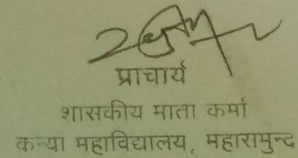 प्राचार्य
शासकीय माता कर्मा
कन्या महाविद्यालय, महासमुन्द